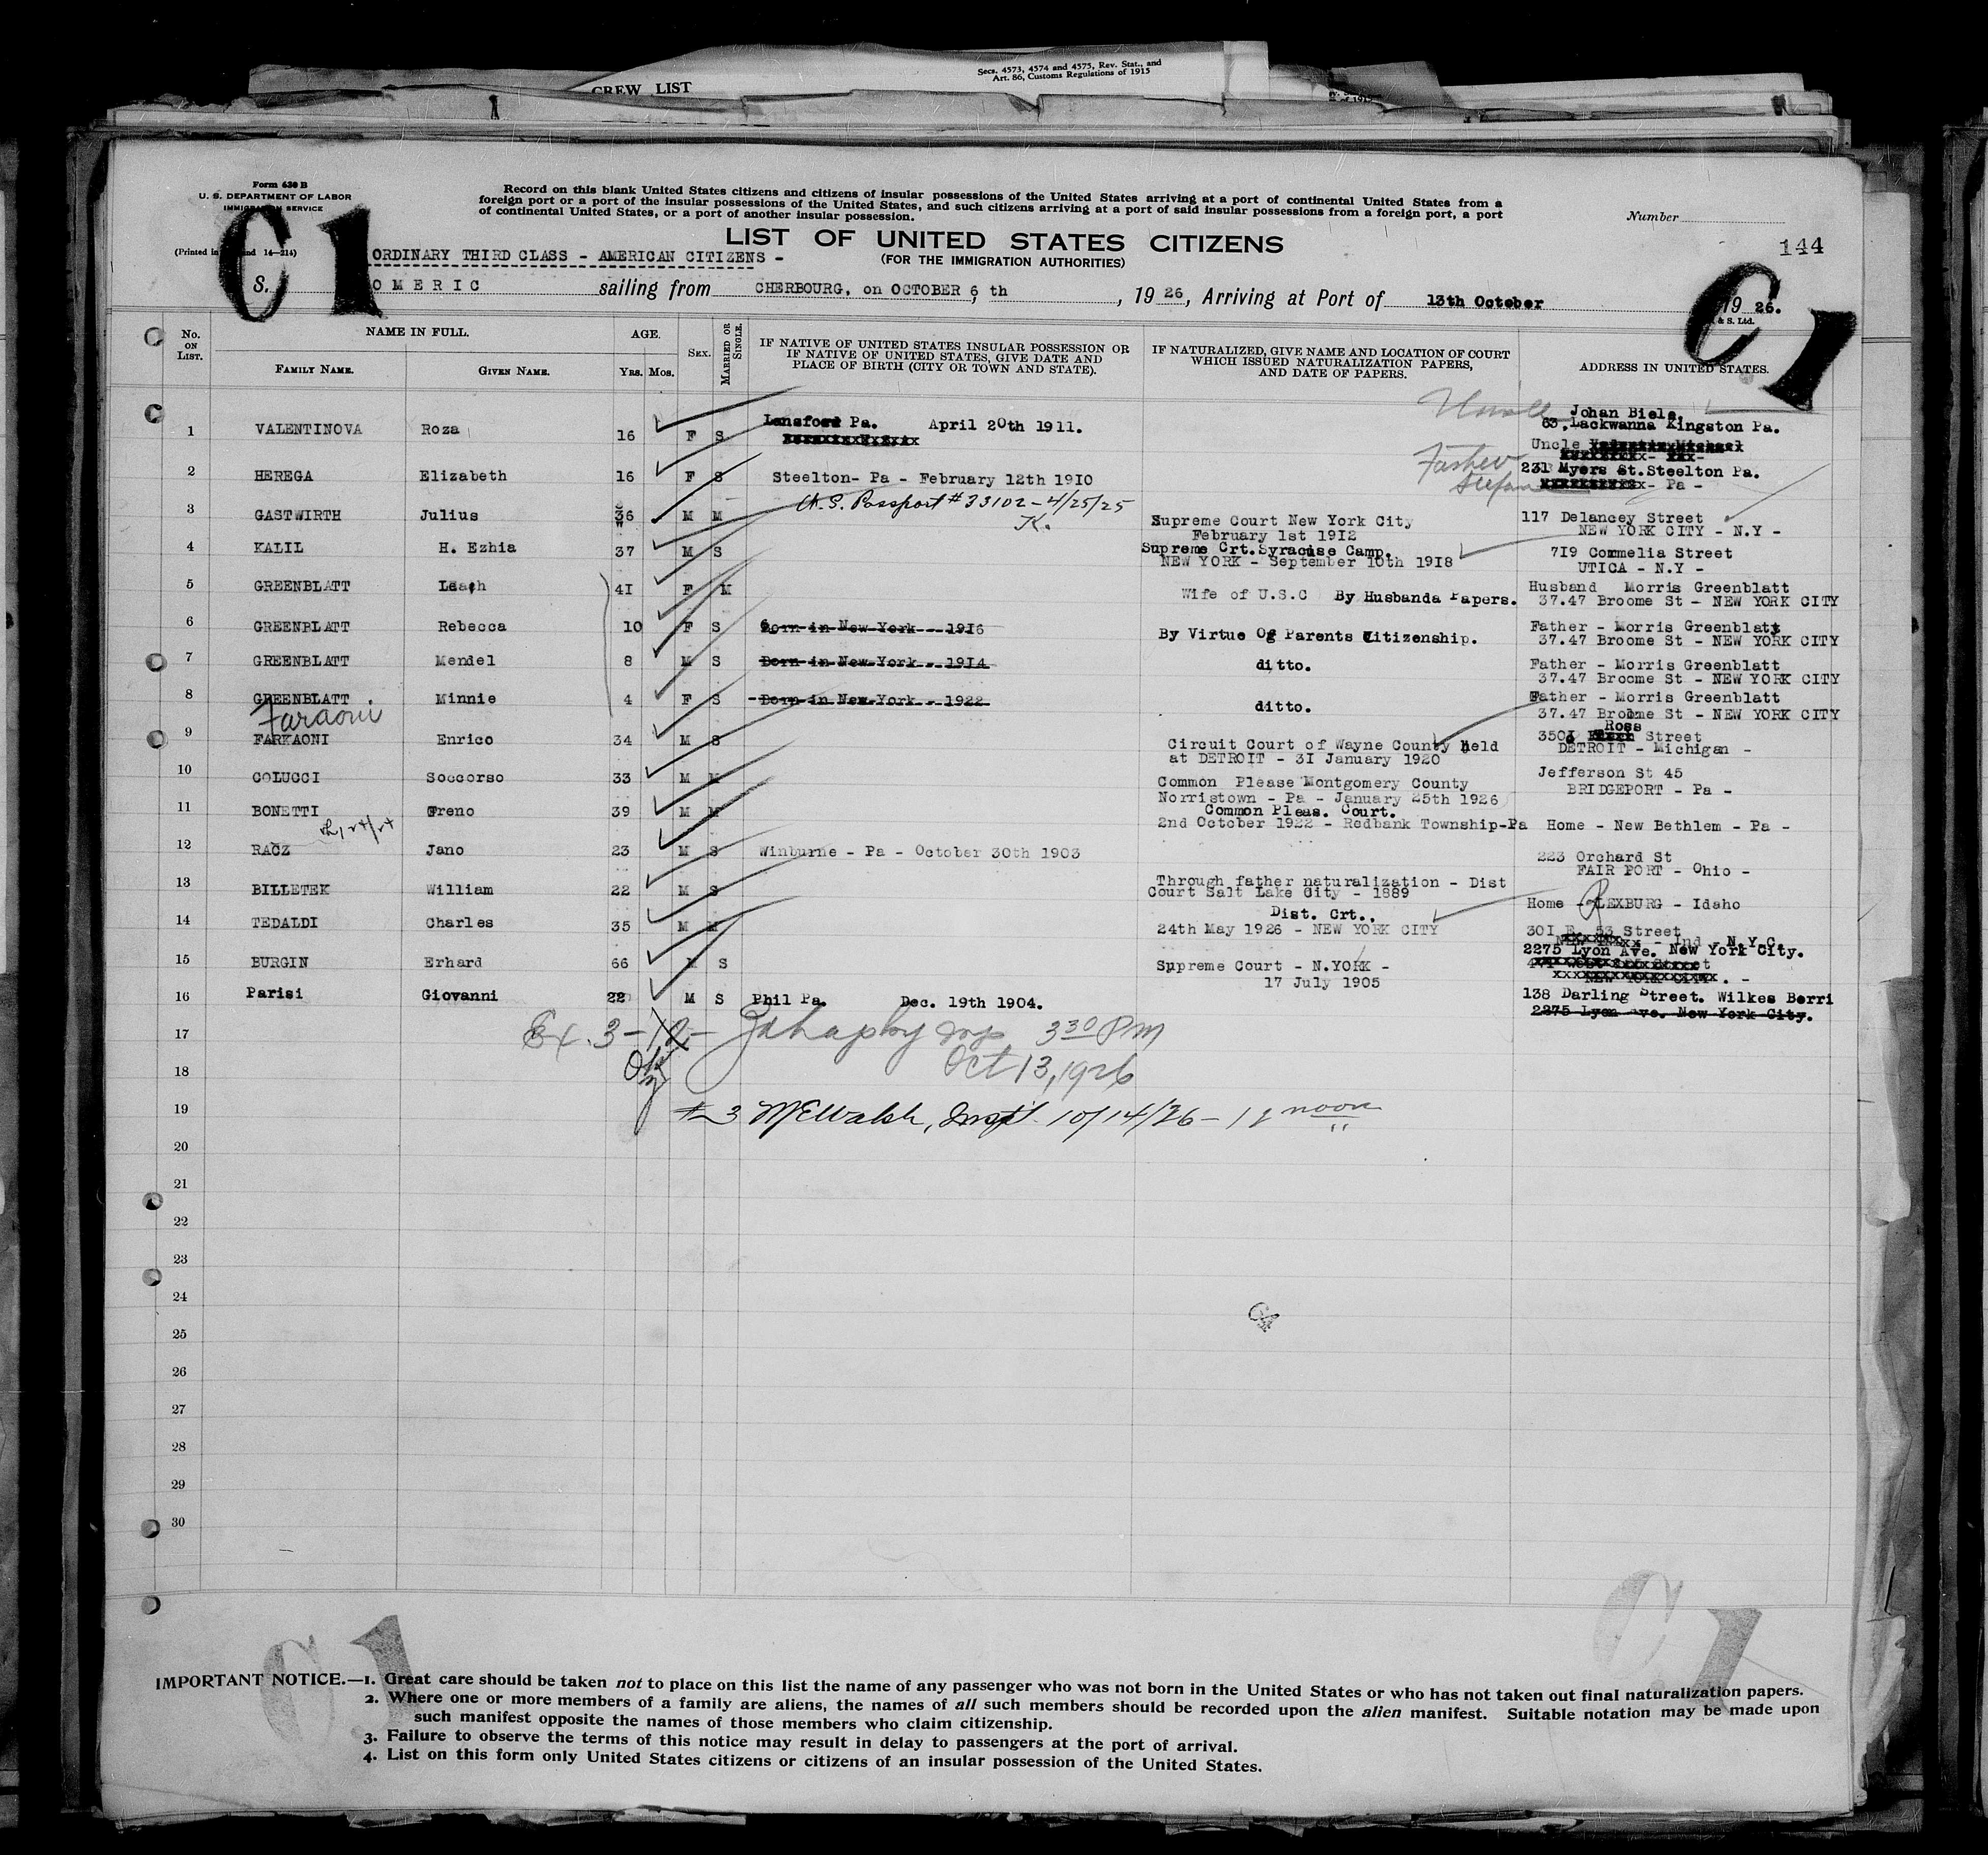 CREW LIST
Secs. 4573, 4574 and 4575, Rev. Stat., and
Art. 86, Customs Regulations of 1915
Form 630 B
U. S. DEPARTMENT OF LABOR
IMMIGRATION SERVICE
Record on this blank United States citizens and citizens of insular possessions of the United States arriving at a port of continental United States from a
foreign port or a port of the insular possessions of the United States, and such citizens arriving at a port of said insular possessions from a foreign port, a port
of continental United States, or a port of another insular possession.
Number
C1
LIST OF UNITED STATES CITIZENS
(FOR THE IMMIGRATION AUTHORITIES)
144
(Printed in
ORDINARY THIRD CLASS - AMERICAN CITIZENS -
C1
S. OMERIC sailing from CHERBOURG, on OCTOBER 6 th, 19 26, Arriving at Port of 13th October 19 26.
& S. Ltd.
No. ON LIST.
NAME IN FULL.
FAMILY NAME.
GIVEN NAME.
AGE.
YRS. MOS.
SEX.
MARRIED OR SINGLE.
IF NATIVE OF UNITED STATES INSULAR POSSESSION OR
IF NATIVE OF UNITED STATES, GIVE DATE AND
PLACE OF BIRTH (CITY OR TOWN AND STATE).
IF NATURALIZED, GIVE NAME AND LOCATION OF COURT
WHICH ISSUED NATURALIZATION PAPERS,
AND DATE OF PAPERS.
ADDRESS IN UNITED STATES.
1 VALENTINOVA Roza 16 F S Lansford Pa. April 20th 1911. Johan Biele.
63, Lackwanna Kingston Pa.
Uncle
2 HEREGA Elizabeth 16 F S Steelton- Pa - February 12th 1910 Father Stefan 231 Myers St. Steelton Pa.
- Pa -
U.S. Passport # 33102 - 4/25/25
K.
3 GASTWIRTH Julius 36 M M Supreme Court New York City 117 Delancey Street
February 1st 1912 NEW YORK CITY - N.Y -
4 KALIL H. Ezhia 37 M S Supreme Crt. Syracuse Camp. 719 Commelia Street
NEW YORK - September 10th 1918 UTICA - N.Y -
5 GREENBLATT Leach 41 F M Wife of U.S.C By Husbanda Papers. Husband Morris Greenblatt
37.47 Broome St - NEW YORK CITY
6 GREENBLATT Rebecca 10 F S Born in New York - 1916 By Virtue Of Parents Citizenship. Father - Morris Greenblatt
37.47 Broome St - NEW YORK CITY
7 GREENBLATT Mendel 8 M S Born in New York - 1914 ditto. Father - Morris Greenblatt
37.47 Broome St - NEW YORK CITY
8 GREENBLATT Minnie 4 F S Born in New York - 1922 ditto. Father - Morris Greenblatt
37.47 Broome St - NEW YORK CITY
Faraoni
9 FARKAONI Enrico 34 M S Circuit Court of Wayne County held 3501 Ross Street
at DETROIT - 31 January 1920 DETROIT - Michigan -
10 COLUCCI Soccorso 33 M M Common Please Montgomery County Jefferson St 45
Norristown - Pa - January 25th 1926 BRIDGEPORT - Pa -
11 BONETTI Greno 39 M M Common Pleas. Court.
2nd October 1922 - Redbank Township-Pa Home - New Bethlem - Pa -
12 RACZ Jano 23 M S Winburne - Pa - October 30th 1903 223 Orchard St
FAIR PORT - Ohio -
13 BILLETEK William 22 M S Through father naturalization - Dist
Court Salt Lake City - 1889 Home - REXBURG - Idaho
14 TEDALDI Charles 35 M M Dist. Crt.,
24th May 1926 - NEW YORK CITY 301 E. 53 Street
- Ind - N.Y.C.
15 BURGIN Erhard 66 M S Supreme Court - N.YORK - 2275 Lyon Ave. New York City.
17 July 1905
NEW YORK CITY. -
16 Parisi Giovanni 22 M S Phil Pa. Dec. 19th 1904. 138 Darling Street. Wilkes Berri
2275 Lyon Ave. New York City.
17
Ex. 3 - 12 - 3 30 PM
18
Oct 13, 1926
19
#3 McWalsh, Insp. 10/14/26 - 12 noon
20
21
22
23
24
25
26
27
28
29
30
C1
C1
IMPORTANT NOTICE.—1. Great care should be taken not to place on this list the name of any passenger who was not born in the United States or who has not taken out final naturalization papers.
2. Where one or more members of a family are aliens, the names of all such members should be recorded upon the alien manifest. Suitable notation may be made upon
such manifest opposite the names of those members who claim citizenship.
3. Failure to observe the terms of this notice may result in delay to passengers at the port of arrival.
4. List on this form only United States citizens or citizens of an insular possession of the United States.